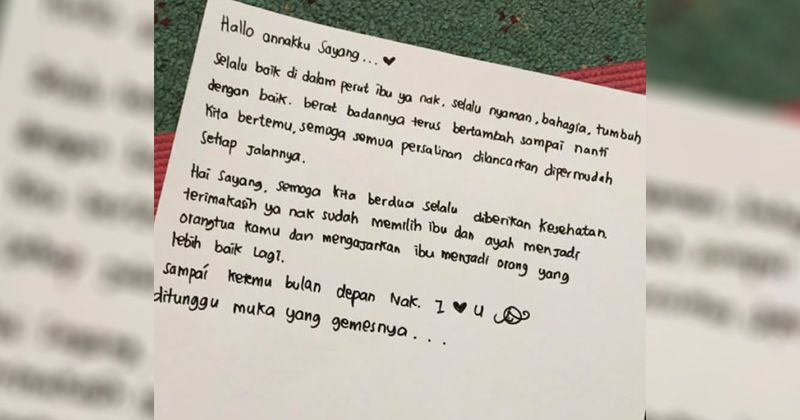 Hallo annakku Sayang... ♥
Selalu baik di dalam perut ibu ya nak, selalu nyaman, bahagia, tumbuh
dengan baik. berat badannya terus bertambah sampai nanti
kita bertemu, semoga semua persalinan dilancarkan dipermudah
setiap jalannya.
Hai Sayang, semoga kita berdua selalu diberikan kesehatan
terimakasih ya nak sudah memilih ibu dan ayah menjadi
orangtua kamu dan mengajarkan ibu menjadi orang yang
lebih baik lagi.
sampai ketemu bulan depan Nak. I ♥ U
ditunggu muka yang gemesnya...